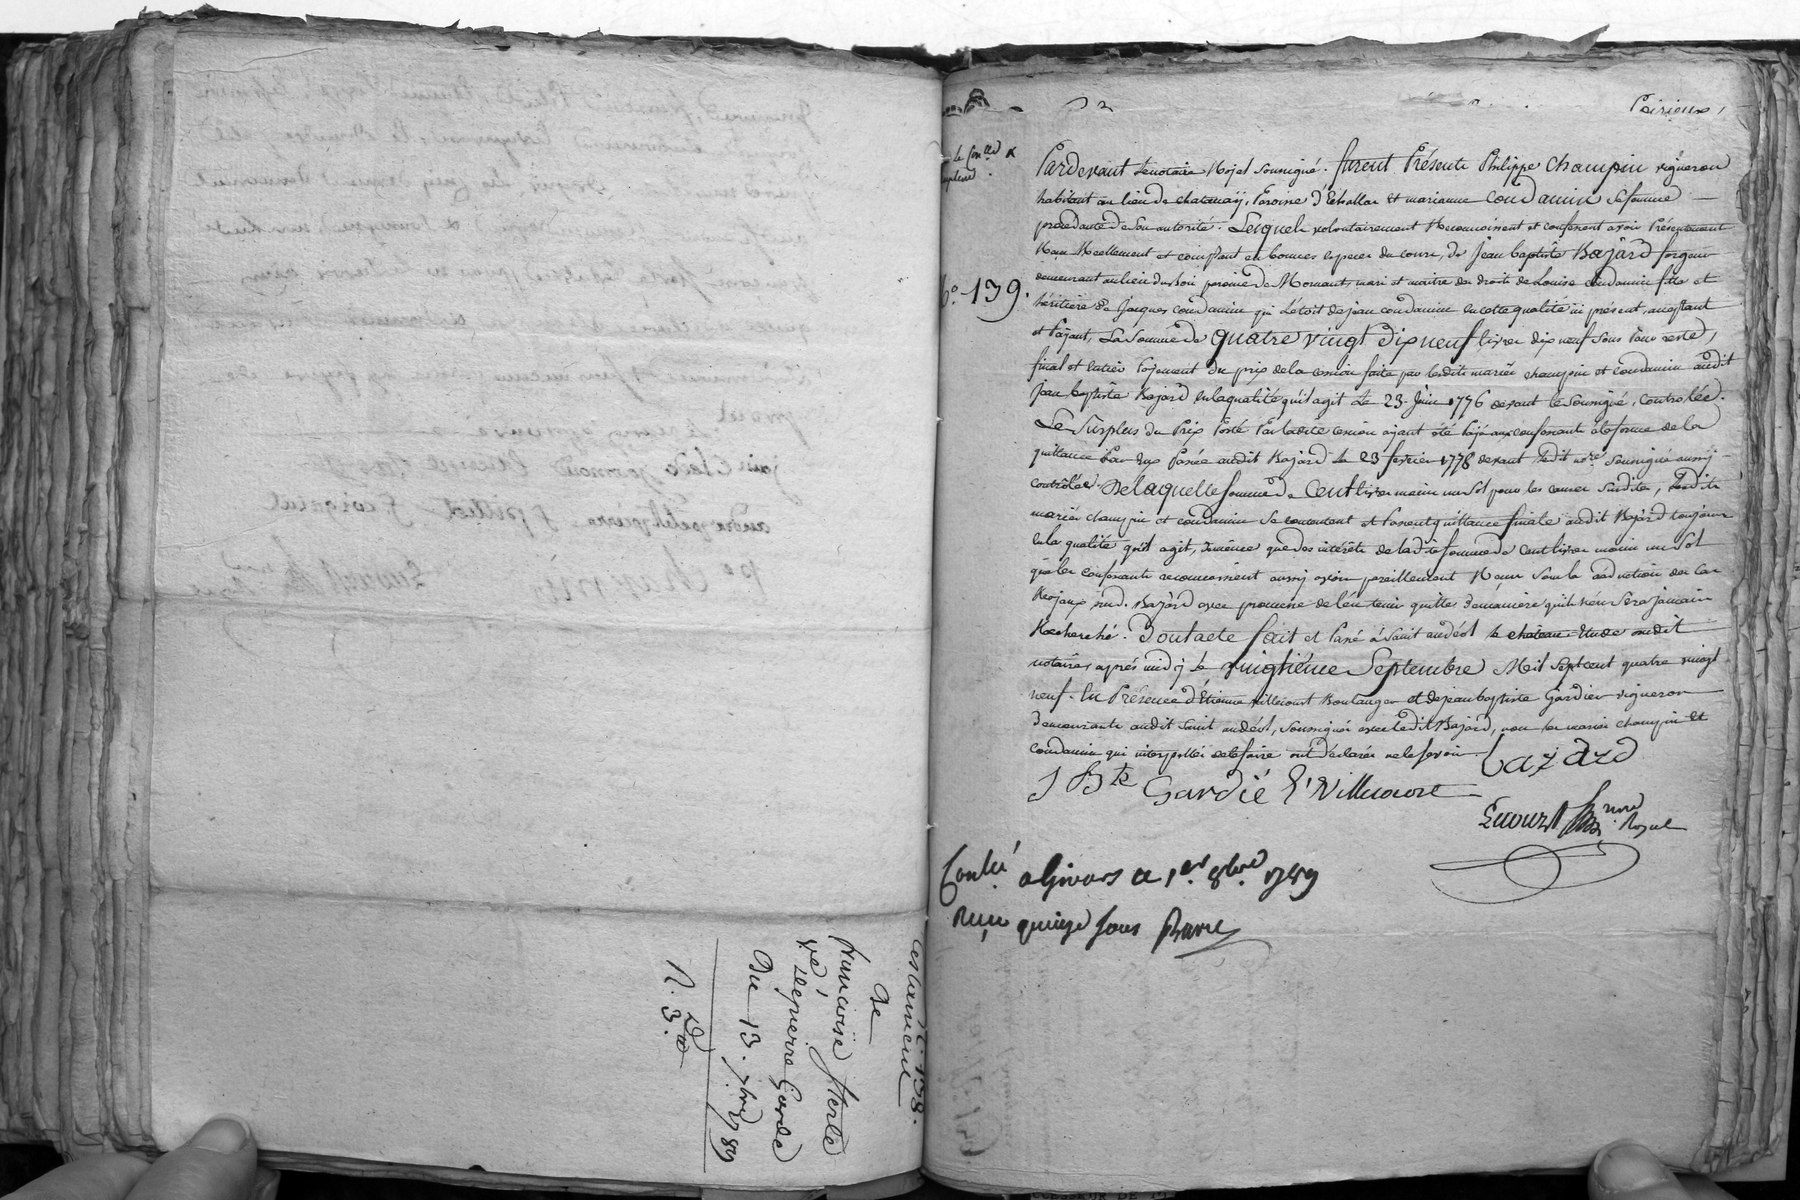 N.° 138.
testament
de
francoise fferlé
vé de pierre Garde
Du 13. 7bre 89
R.
3.
Pardevant Le notaire Royal Soussigné. furent Présents Philippe Champin vigneron
habitant au lieu de chatanay, Paroisse d'Echallas et marianne Condamin sa femme
procedante de son autorité. Lesquels volontairement Reconnoissent et confessent avoir Présentement
Reçu Réellement et comptant en bonnes especes du cours, de Jean baptiste Bajard forgeur
demeurant au lieu du paroisse de Mornant, mari et maitre des droits de Louise condamin fille et
héritiere de Jacques condamin qui L'étoit de jean condamin en cette qualité ici présent, acceptant
et Payant, La Somme de quatre vingt dix neuf livres dix neuf Sous Pour reste,
final et entier Payement du prix de la cession faite par lesdits mariés champin et condamin audit
Jean baptiste Bajard en la qualité qu'il agit Le 23. Juin 1776 devant le Soussigné, Controlée.
Le Surplus du Prix Porté Par ladite cession ayant été Payé aux confessants à la forme de la
quittance Par Eux Passée audit Bajard Le 23 fevrier 1778 devant ledit nore. Soussigné aussy
controlée. De laquelle Somme de Cent livres moins un Sol pour les causes Susdites, Lesdits
mariés champin et condamin Se contentent et Passent quittance finale audit Bajard toujours
en la qualité qu'il agit, de même que des intérêts de la dite Somme de cent livres moins un Sol
que les confessants reconnoissent aussy avoir pareillement Reçu Sous la déduction des cas
Royaux dud. Bajard avec promesse de l'en tenir quitte, de maniere qu'il n'en Sera jamais
Recherché. Dont acte fait et Passé à Saint andéol le chateau Etude dudit
notaire, après midy le vingtième Septembre Mil Sept cent quatre vingt
neuf. En Présence d'Etienne villecourt Boulanger et de jean baptiste Gardier vigneron
demeurants audit Saint andéol, Soussignés avec ledit Bajard, non les mariés champin et
condamin qui interpellés de le faire ont déclarés ne le savoir.
bajard
J Bte Gardié E. Villecourt
nore Royal
N.° 139.
Conlé a Givors ce 1er 8bre 1789
Reçu quinze sous